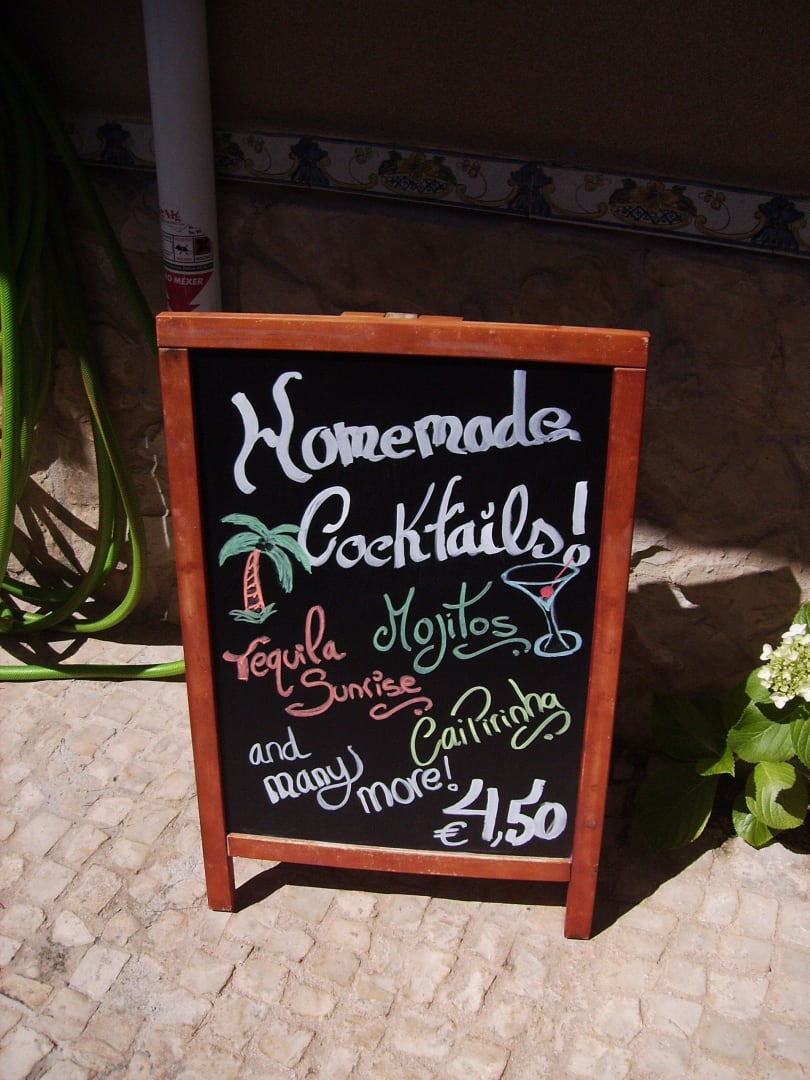 O MEXER
Homemade
Cocktails!
Mojitos
Tequila
Sunrise
CaiPirinha
and
many
more!
€ 4,50